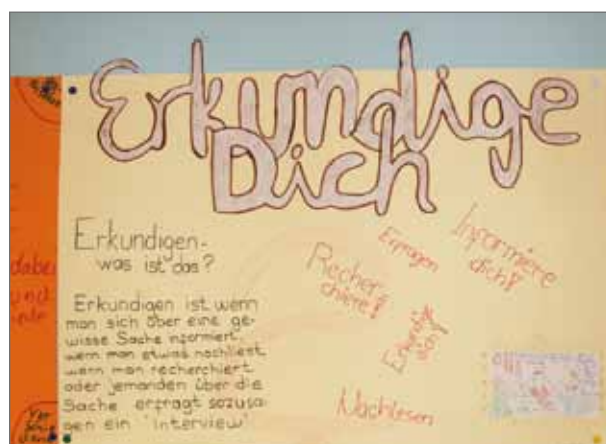 Erkundige
Dich
Erkundigen-
was ist das?
Erkundigen ist wenn
man sich über eine ge-
wisse Sache informiert,
wenn man etwas nachliest
wenn man recherchiert
oder jemanden über die
Sache erfragt sozusa-
gen ein "Interview"
Erfragen
Informiere
dich!
Recher-
chiere!
Erkundige
dich!
Nachlesen
dabei
und